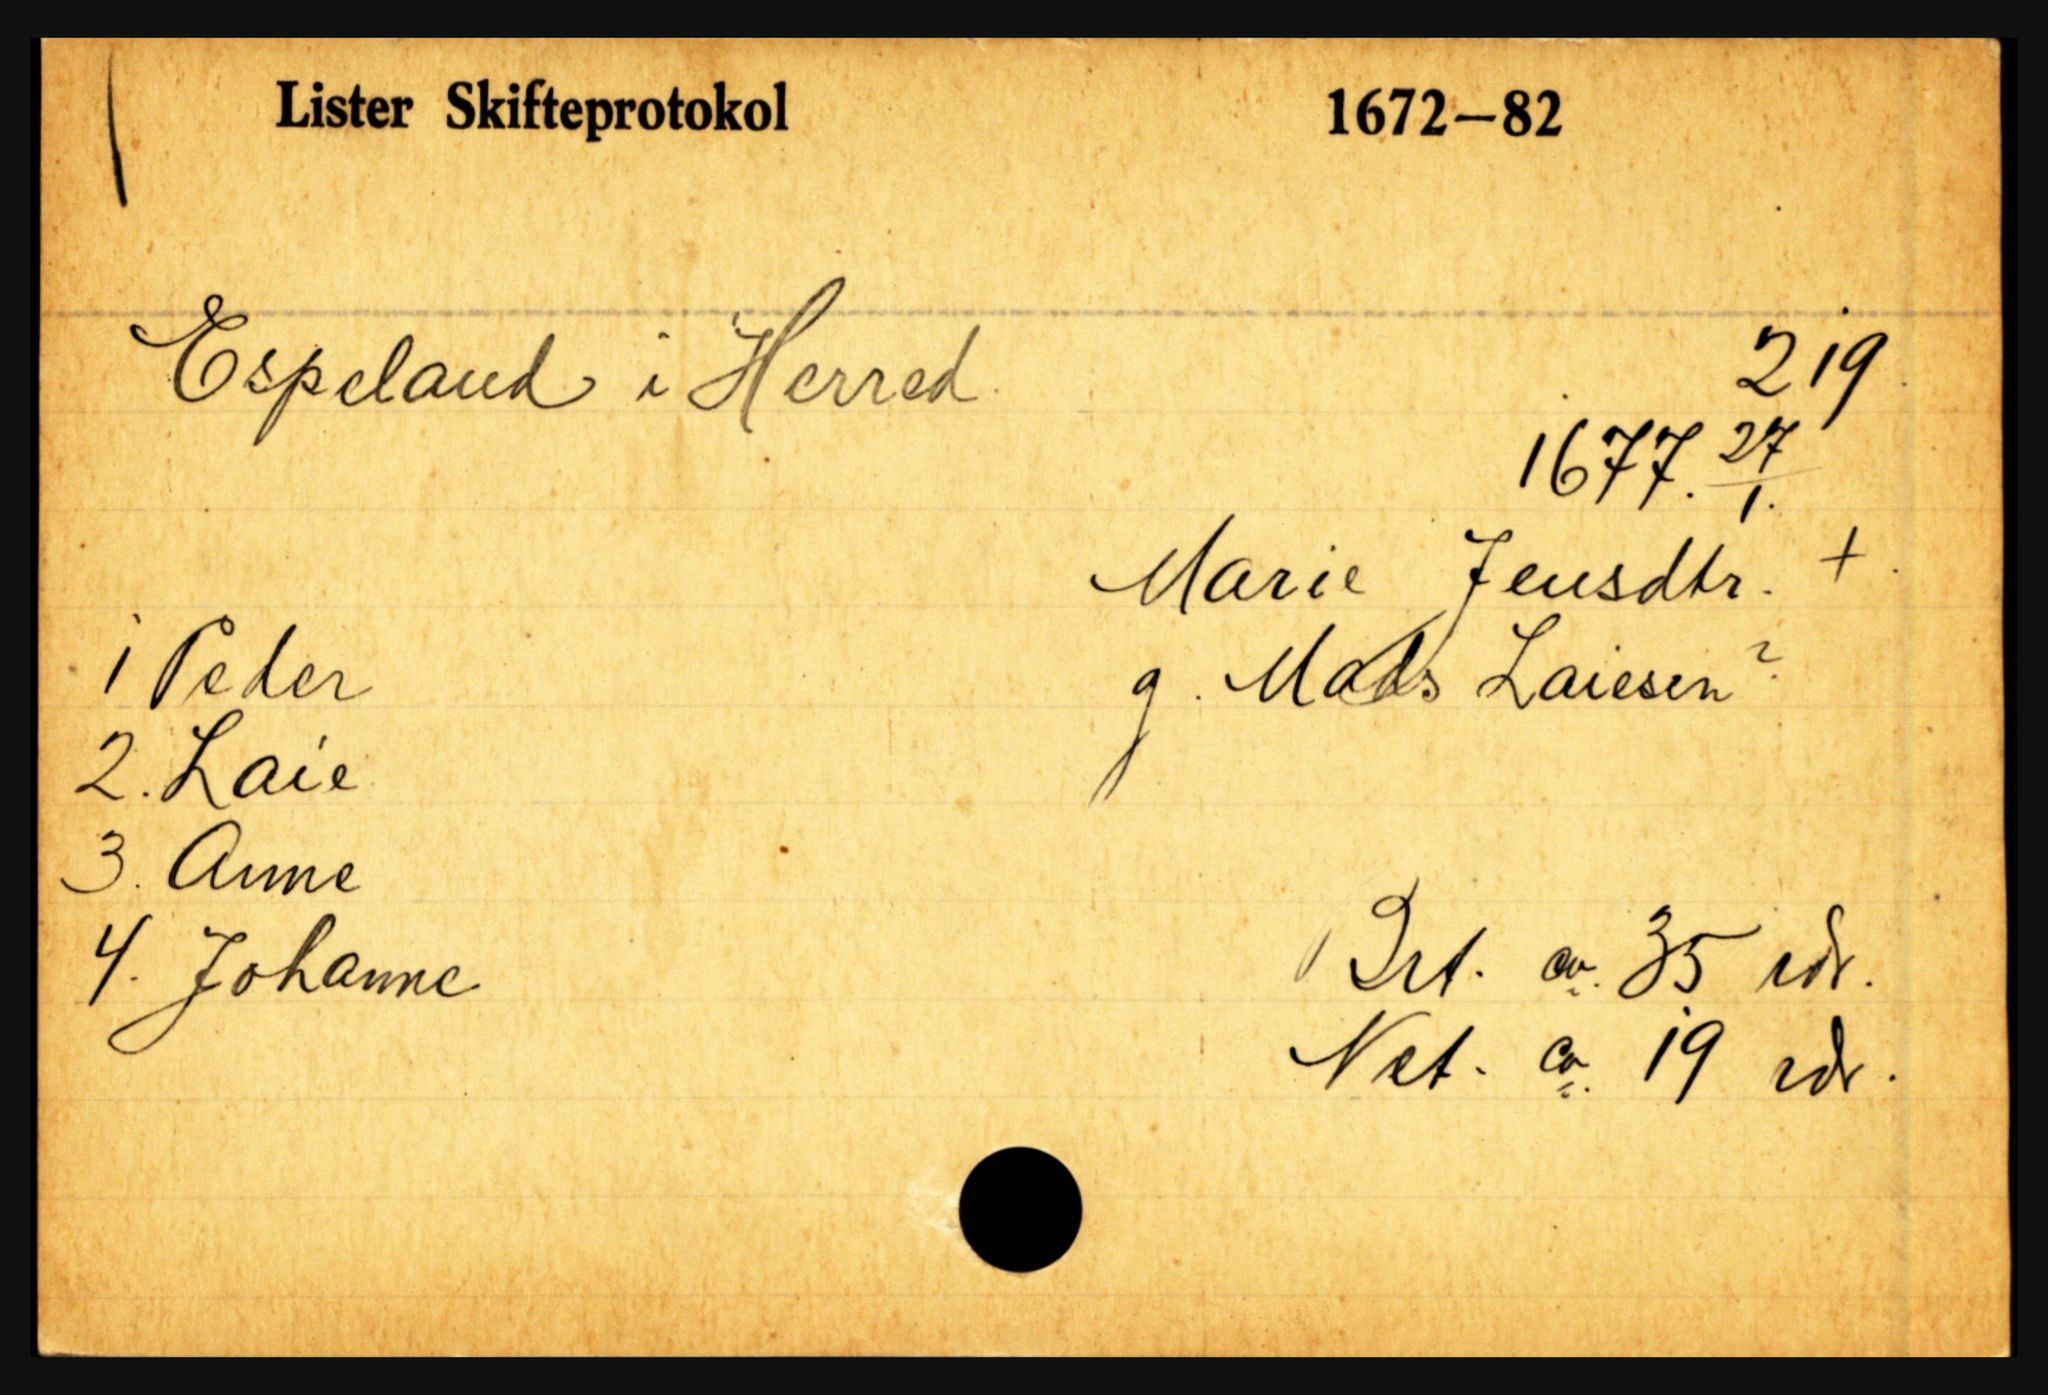 Lister Skifteprotokol 1672–82
Espeland i Herred 219
1677. 27/1.
Marie Jensdtr. +
1 Peder g. Mads Laiesen ?
2. Laie
3. Anne
4. Johanne Brt. ca. 35 rdr.
Net. ca. 19 rdr.